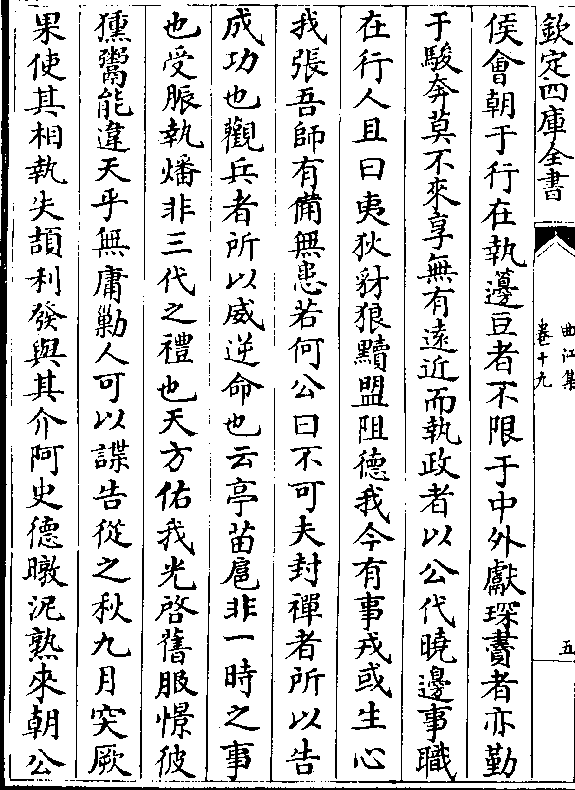 欽定四庫全書
曲江集
卷十九
五
侯會朝于行在執籩豆者不限于中外獻琛賮者亦勤
于駿奔莫不來享無有遠近而執政者以公代曉邊事職
在行人且曰夷狄豺狼黷盟阻德我今有事戎或生心
我張吾師有備無患若何公曰不可夫封禪者所以告
成功也觀兵者所以威逆命也云亭苗扈非一時之事
也受脤執燔非三代之禮也天方佑我光啓舊服憬彼
獯鬻能違天乎無庸勦人可以諜告從之秋九月突厥
果使其相執失頡利發與其介阿史德暾泥熟來朝公